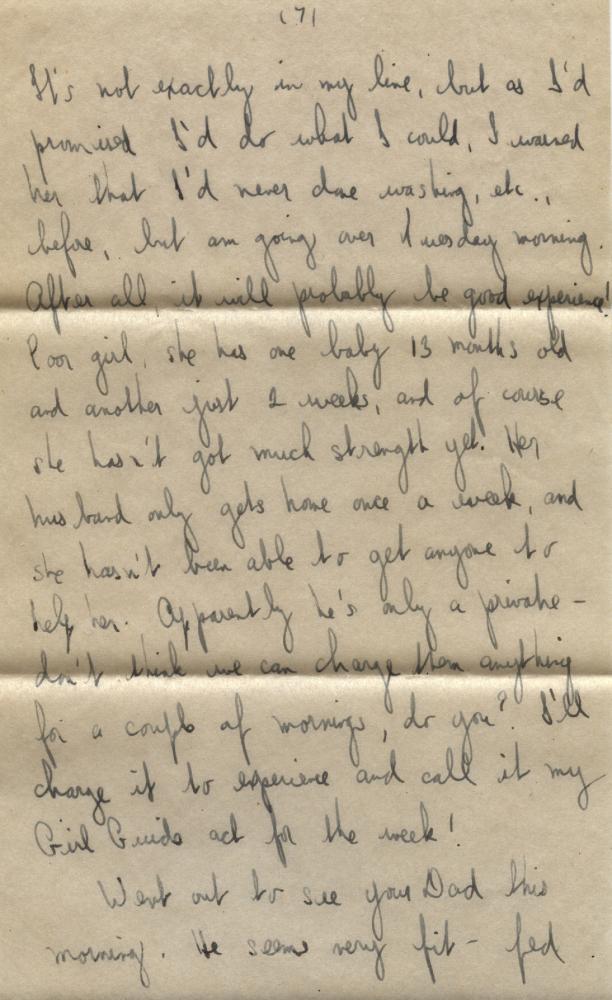 (7)
It's not exactly in my line, but as I'd
promised I'd do what I could, I warned
her that I'd never done washing, etc.,
before, but am going over Tuesday morning.
After all, it will probably be good experience!
Poor girl, she has one baby 13 months old
and another just 2 weeks, and of course
she hasn't got much strength yet. Her
husband only gets home once a week, and
she hasn't been able to get anyone to
help her. Apparently he's only a private -
don't think we can charge them anything
for a couple of mornings, do you? I'll
charge it to experience and call it my
Girl Guide act for the week!
Went out to see your Dad this
morning. He seems very fit - fed